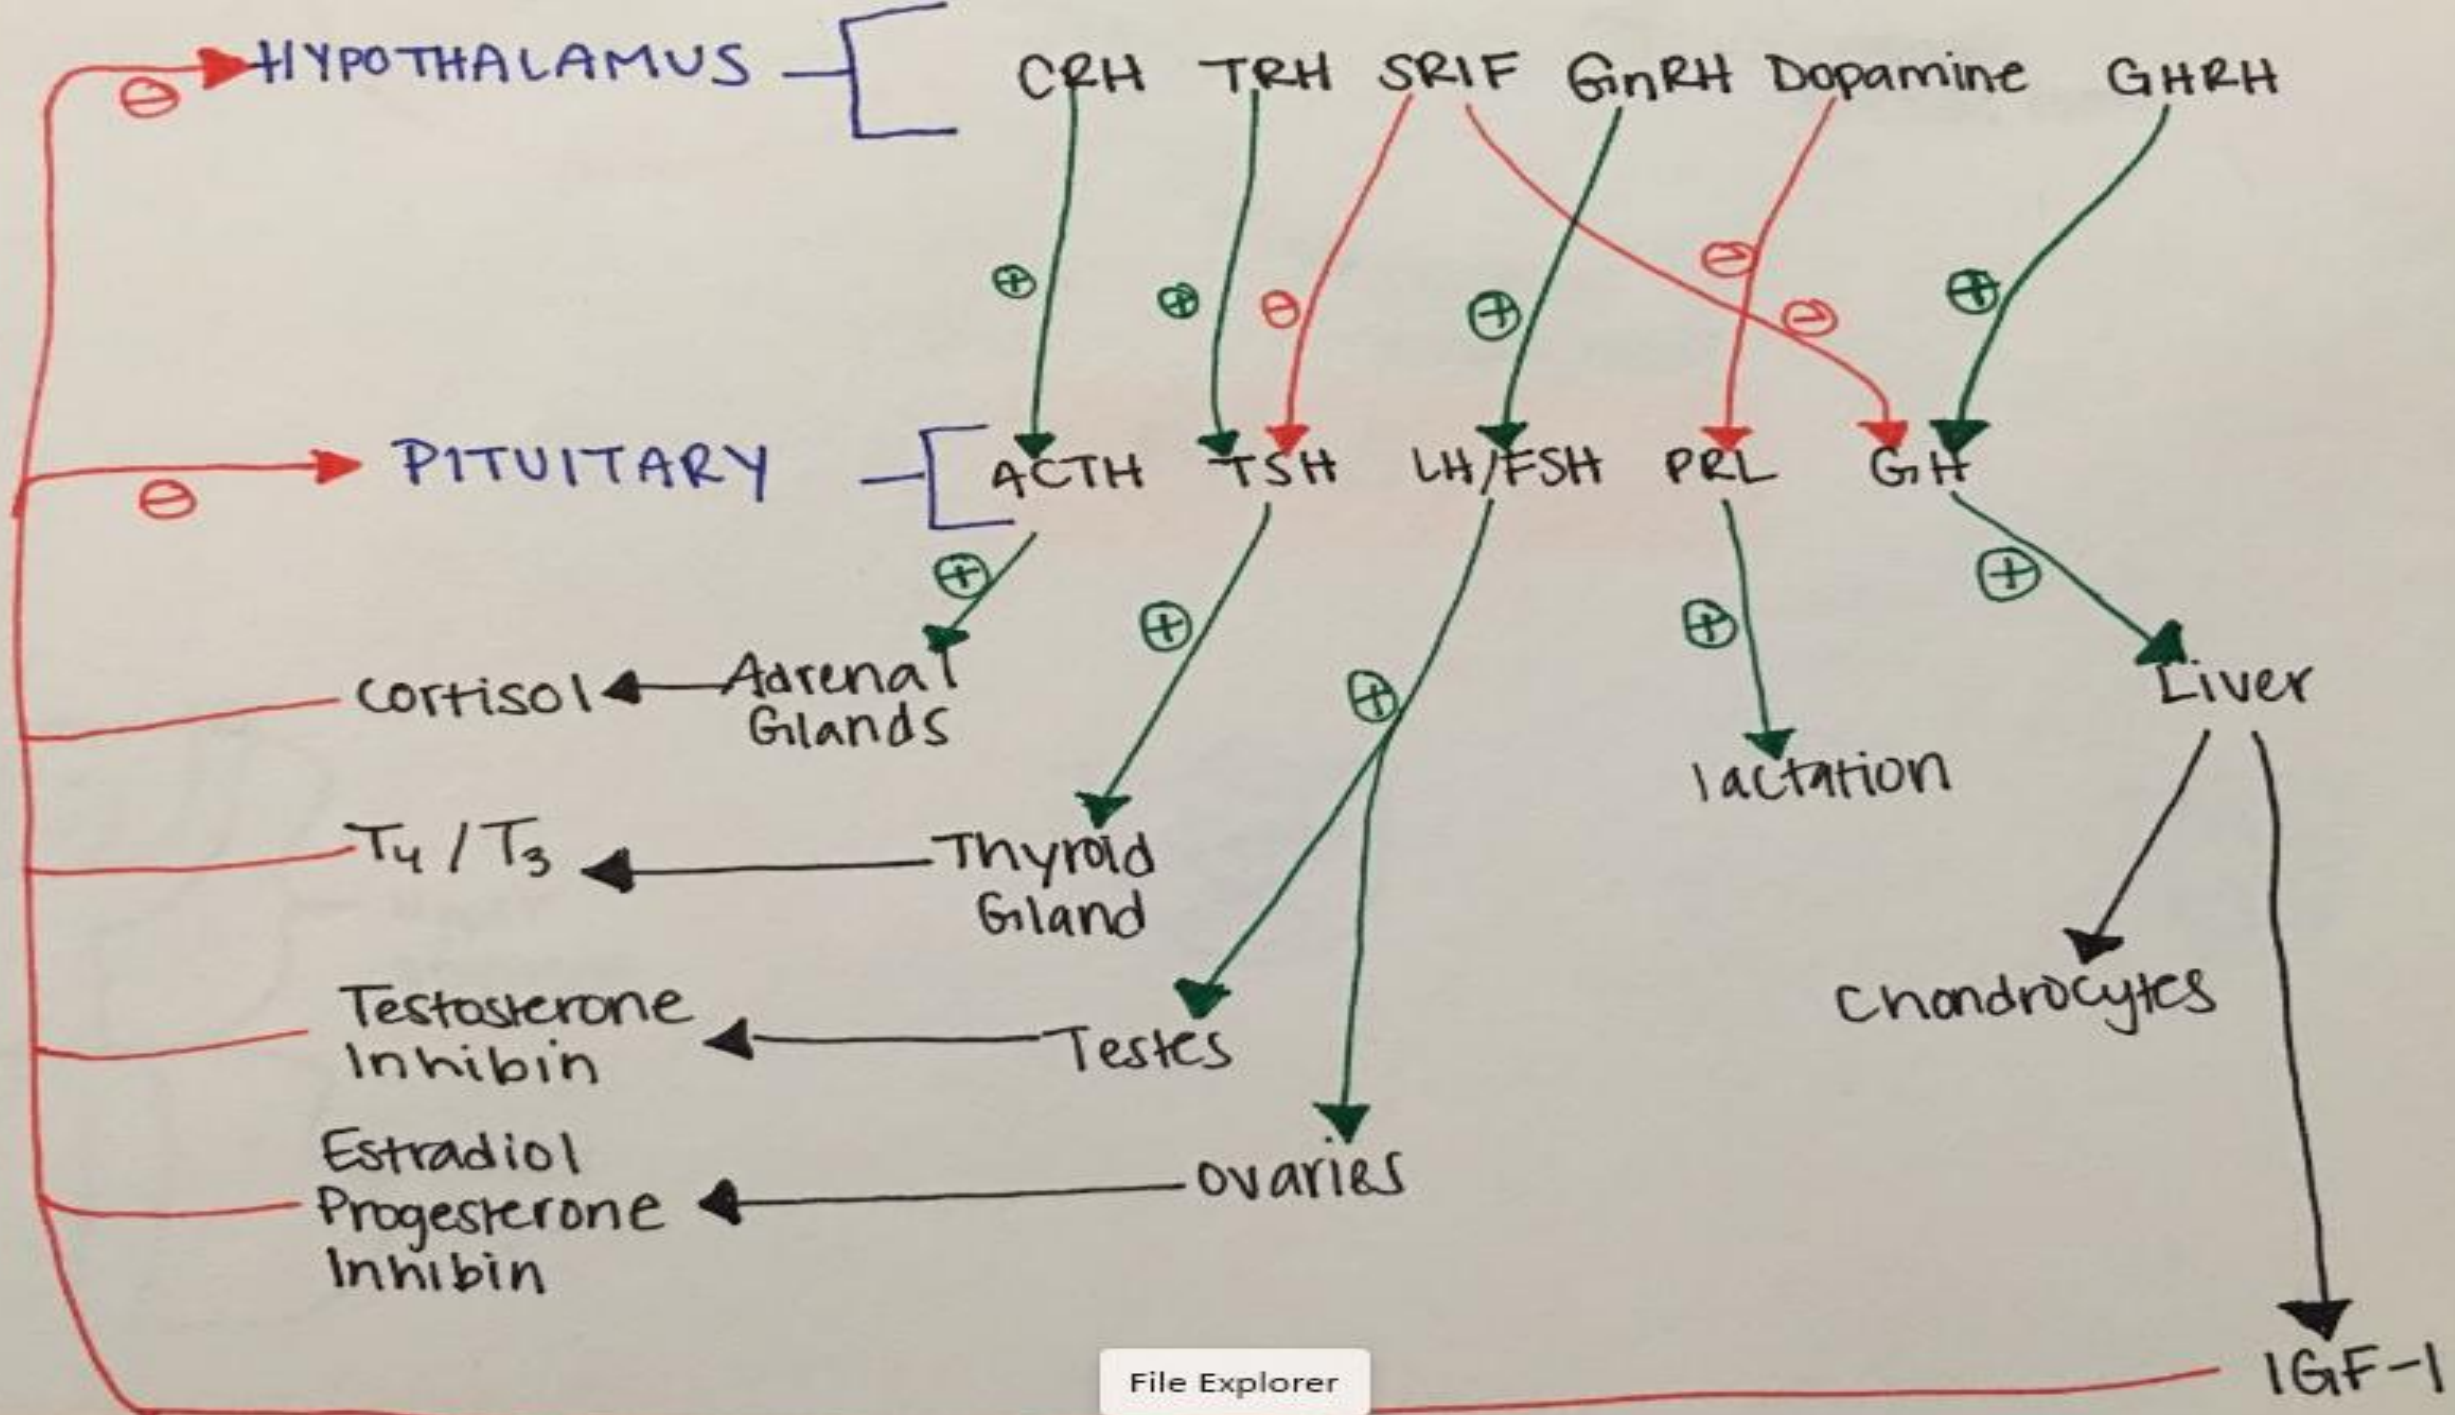 HYPOTHALAMUS CRH TRH SRIF GnRH Dopamine GHRH
⊖
⊕ ⊕ ⊖ ⊕ ⊖ ⊖ ⊕
PITUITARY ACTH TSH LH/FSH PRL GH
⊖
⊕ ⊕ ⊕ ⊕ ⊕
Cortisol Adrenal
Glands
Liver
lactation
T4 / T3 Thyroid
Gland
Chondrocytes
Testosterone
Inhibin
Testes
Estradiol
Progesterone
Inhibin
ovaries
IGF-1
File Explorer